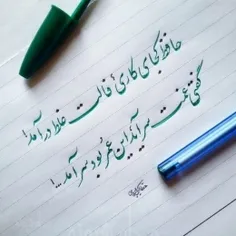 حافظ کجای کاری فالت غلط درآمد!
گفتی غمت سرآید این عمر بود سرآمد...!